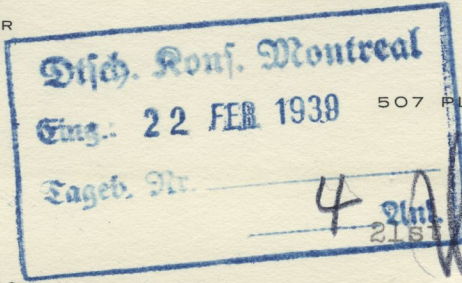 R
Dtsch. Kons. Montreal
Eing.: 22 FEB 1939 507 PL
Tageb. Nr.
4 Anl.
21st